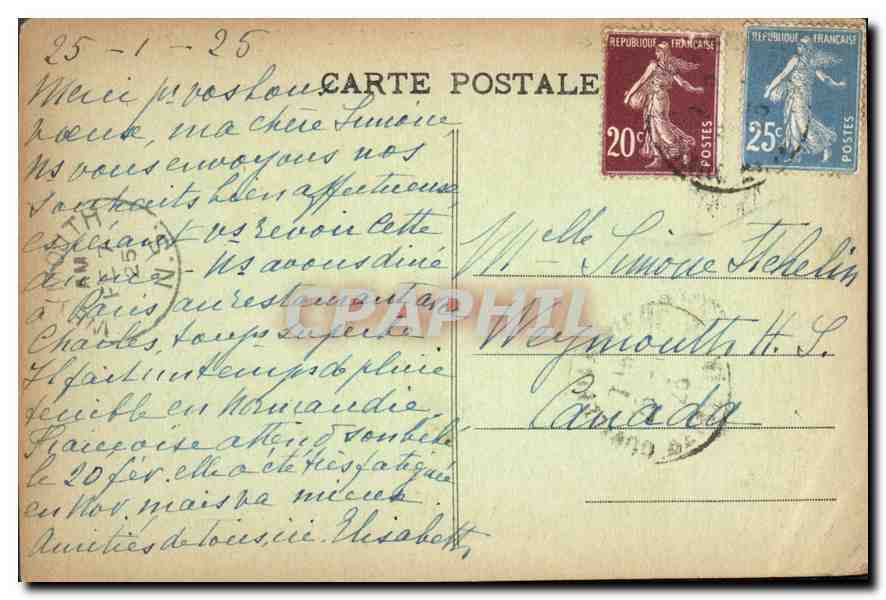 25 - 1 - 25
CARTE POSTALE
REPUBLIQUE FRANÇAISE
20c
POSTES
REPUBLIQUE FRANÇAISE
25c
POSTES
Merci pr vos bons
voeux, ma chère Simone
Ns vous envoyons nos
souhaits bien affectueux,
espérant vs revoir cette
année - Ns avons diné
à Paris au restaurant avec
Charles, temps superbe
Il fait un temps de pluie
terrible en Normandie.
Françoise attend son bébé
le 20 fév. elle a été très fatiguée
en Nov. mais va mieux.
Amitiés de tous, ici Elisabeth
Melle Simone
Weymouth N. S.
Canada
WEYMOUTH N.S.
AM
FE 7
25
CPAPHIL